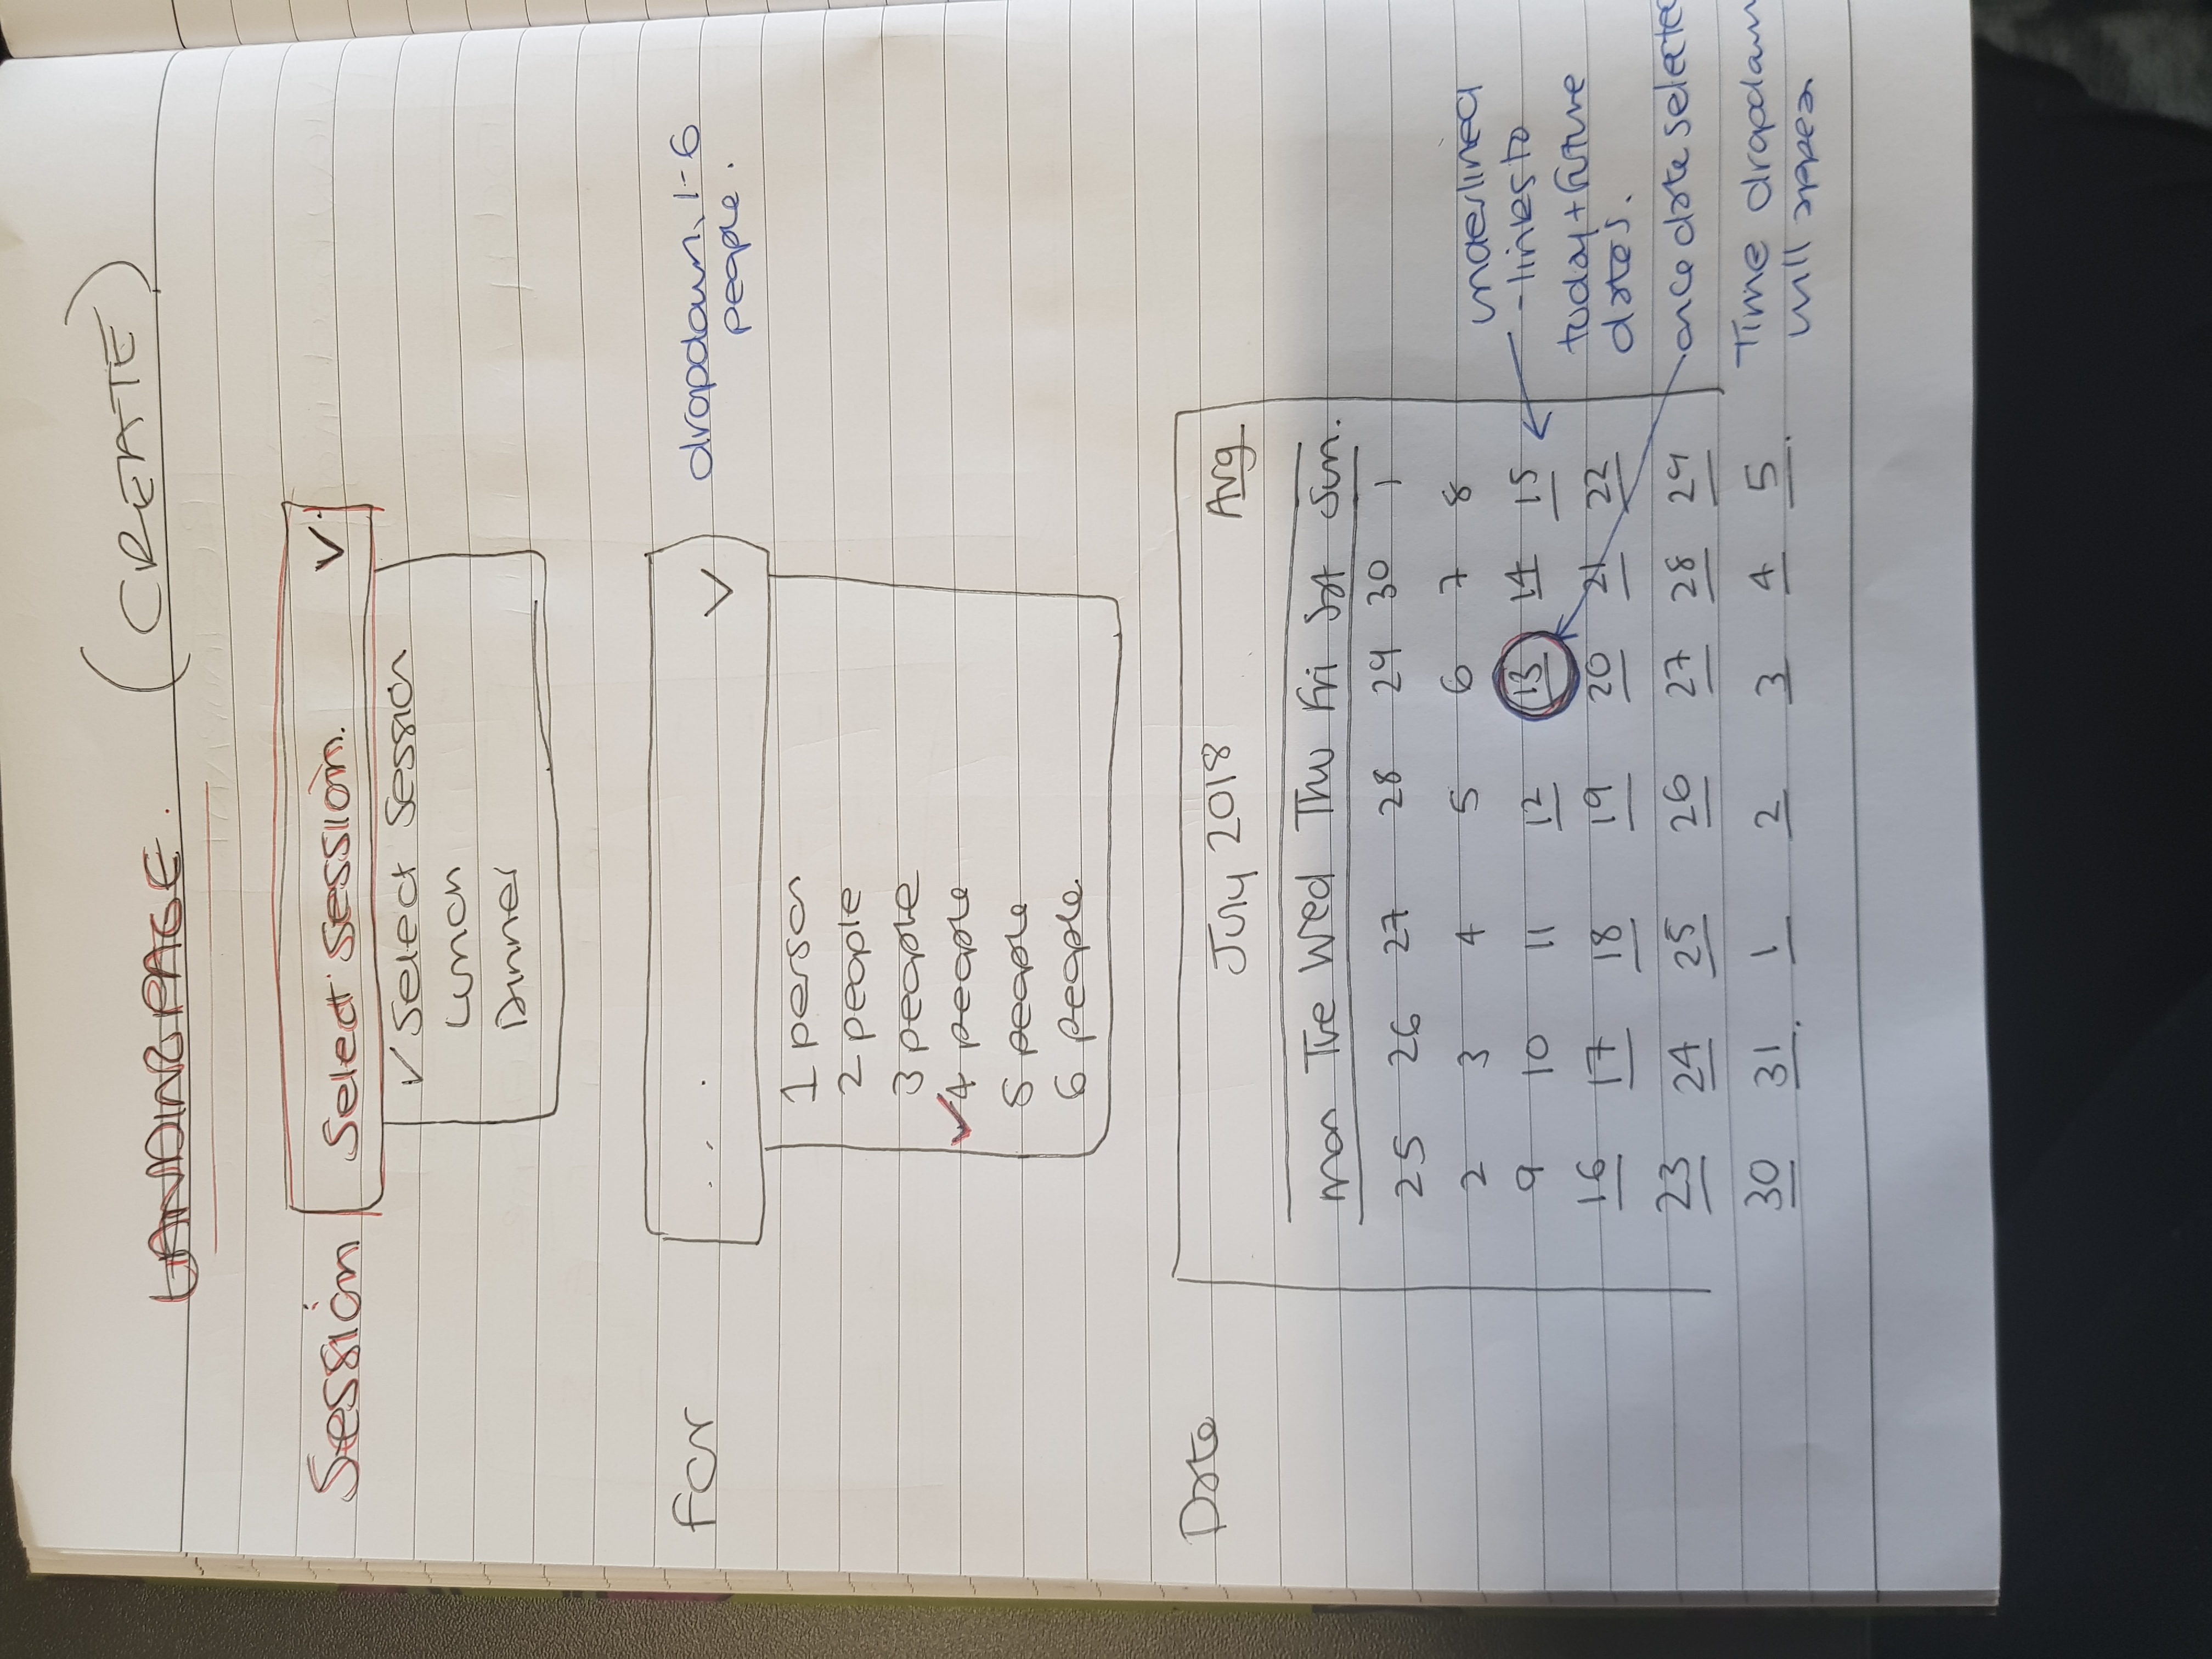 LANDING PAGE. (CREATE)
Session Select session.
✓ Select Session
Lunch
Dinner
For . . .
dropdown 1-6
people.
1 person
2 people
3 people
✓ 4 people
5 people
6 people.
Date
July 2018 Aug
Mon Tue Wed Thu Fri Sat Sun.
25 26 27 28 29 30 1
2 3 4 5 6 7 8
9 10 11 12 13 14 15
16 17 18 19 20 21 22
23 24 25 26 27 28 29
30 31. 1 2 3 4 5.
underlined
- links to
today + future
dates.
once date selected
Time dropdown
will appear